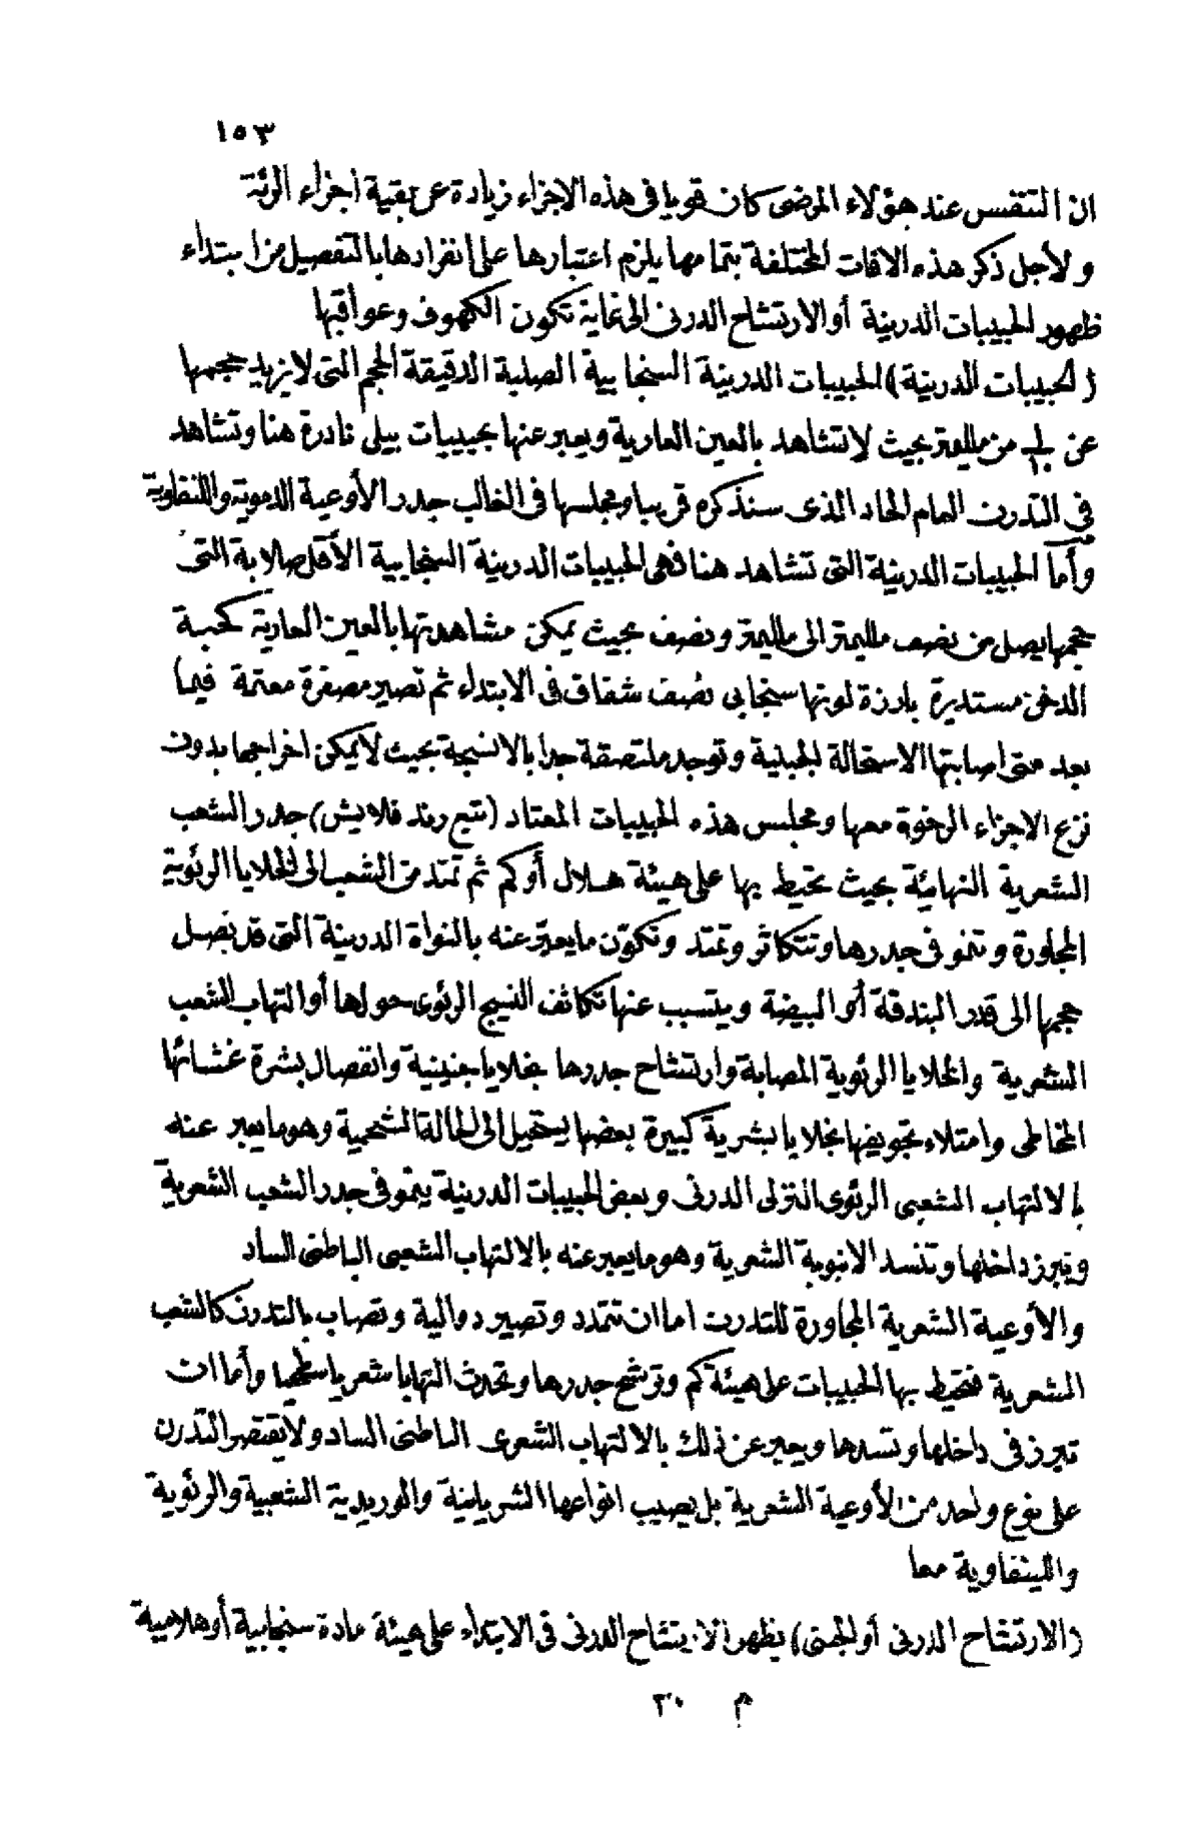 ١٥٣
ان التنفس عند هؤلاء المرضى كان قويا فى هذه الاجزاء زيادة عن بقية اجزاء الرئة
ولأجل ذكر هذه الافات المختلفة بتمامها يلزم اعتبارها على انفرادها بالتفصيل من ابتداء
ظهور الحبيبات الدرنية أو الارتشاح الدرنى الى غاية تكون الكهوف وعواقبها
(الحبيبات الدرنية) الحبيبات الدرنية السنجابية الصلبة الدقيقة الحجم التى لا يزيد حجمها
عن ١/١٠ من ملليمتر بحيث لا تشاهد بالعين العارية ويعبر عنها بحبيبات بيلى نادرة هنا وتشاهد
فى التدرن العام الحاد الذى سنذكره قريبا ومجلسها فى الغالب جدر الأوعية الدموية واللنفاوية
وأما الحبيبات الدرنية التى تشاهد هنا فهى الحبيبات الدرنية السنجابية الأقل صلابة التى
حجمها يصل من نصف ملليمتر الى ملليمتر ونصف بحيث يمكن مشاهدتها بالعين العارية كحبة
الدخن مستديرة بارزة لونها سنجابى نصف شفاف فى الابتداء ثم تصير مصفرة معتمة فيما
بعد متى اصابتها الاستحالة الجبنية وتوجد ملتصقة جدا بالانسجة بحيث لا يمكن اخراجها بدون
نزع الاجزاء الرخوة معها ومجلس هذه الحبيبات المعتاد (نتبع رند فلايش) جدر الشعب
الشعرية النهائية بحيث تحيط بها على هيئة هلال أو كم ثم تمتد من الشعب الى الخلايا الرئوية
المجاورة وتنمو فى جدرها وتتكاثر وتمتد وتكوّن ما يعبر عنه بالنواة الدرنية التى قد يصل
حجمها الى قدر البندقة أو البيضة ويتسبب عنها تكاثف النسيج الرئوى حولها أو التهاب الشعب
الشعرية والخلايا الرئوية المصابة وارتشاح جدرها بخلايا جنينية وانفصال بشرة غشائها
المخاطى وامتلاء تجويفها بخلايا بشرية كبيرة بعضها يستحيل الى الحالة الشحمية وهو ما يعبر عنه
بالالتهاب الشعبى الرئوى النزلى الدرنى وبعض الحبيبات الدرنية ينمو فى جدر الشعب الشعرية
ويبرز داخلها وتنسد الانبوبة الشعرية وهو ما يعبر عنه بالالتهاب الشعبى الباطنى الساد
والأوعية الشعرية المجاورة للتدرن اما ان تتمدد وتصير دوالية وتصاب بالتدرن كالشعب
الشعرية فتحيط بها الحبيبات على هيئة كم وترشح جدرها وتحدث التهابا شعريا سطحيا وأما ان
تبرز فى داخلها وتسدها ويعبر عن ذلك بالالتهاب الشعرى الباطنى الساد ولا يقتصر التدرن
على نوع واحد من الأوعية الشعرية بل يصيب انواعها الشريانية والوريدية الشعبية والرئوية
والليمفاوية معا
(الارتشاح الدرنى أو الجبنى) يظهر الارتشاح الدرنى فى الابتداء على هيئة مادة سنجابية أو هلامية
م ٢٠